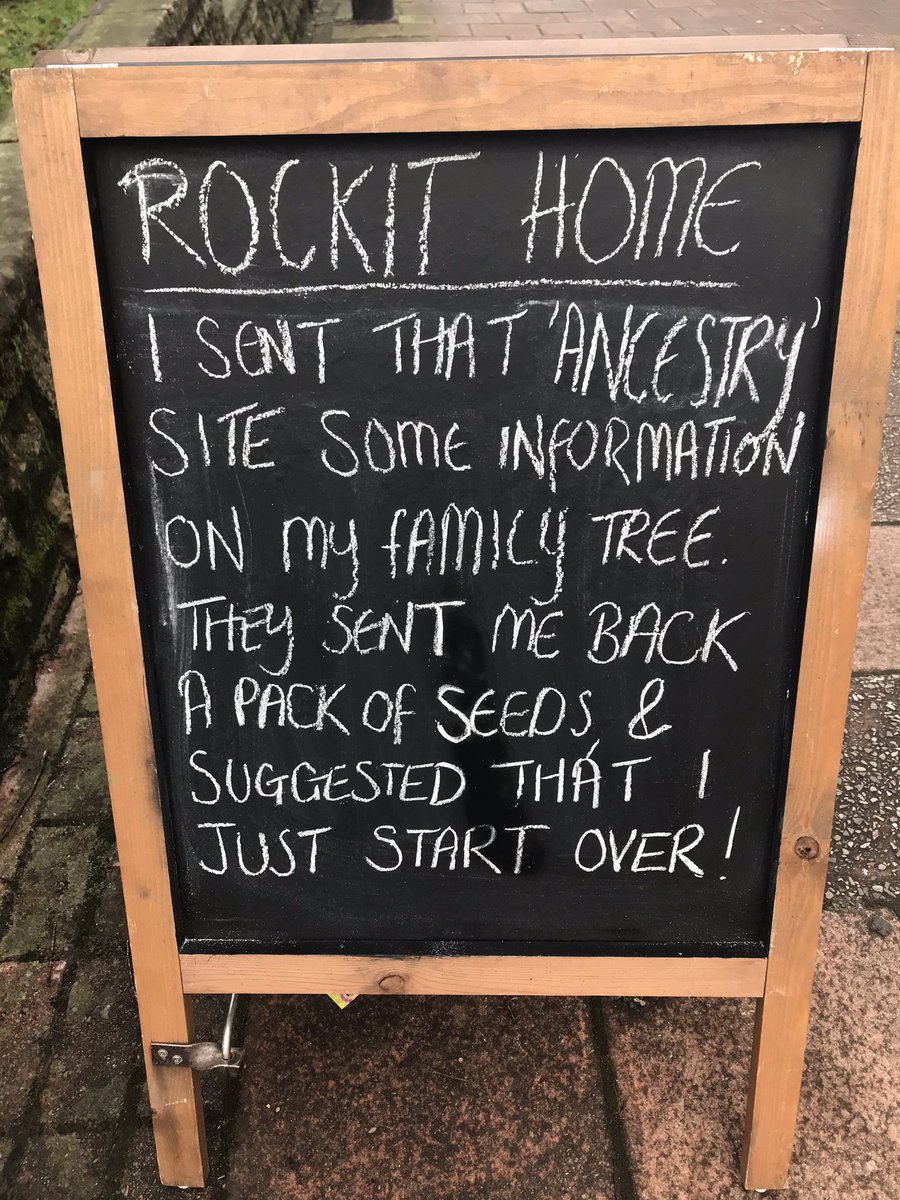 ROCKIT HOME
I SENT THAT 'ANCESTRY'
SITE SOME INFORMATION
ON MY FAMILY TREE.
THEY SENT ME BACK
A PACK OF SEEDS &
SUGGESTED THAT I
JUST START OVER!